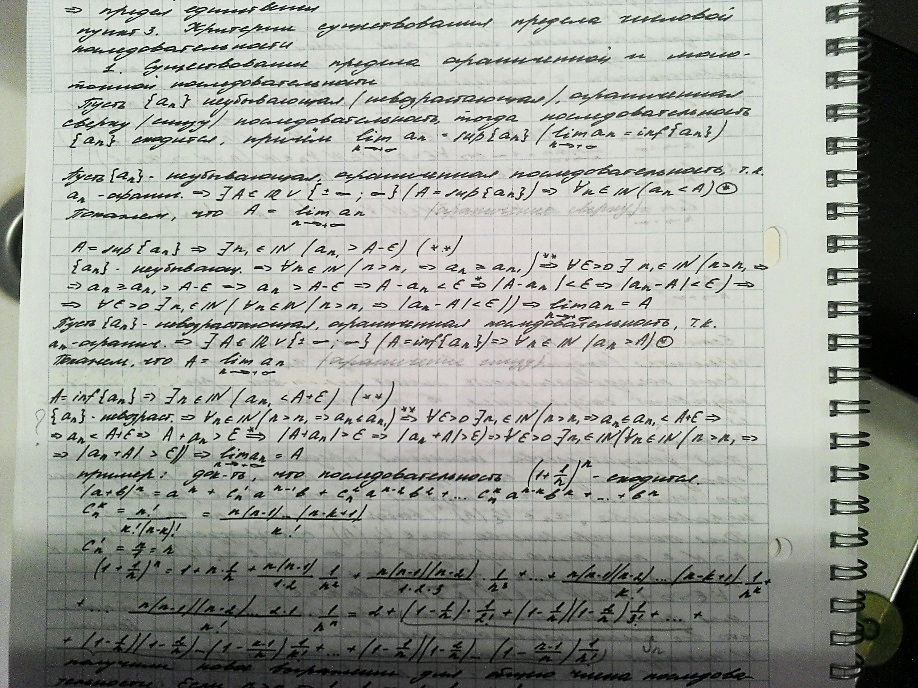 ⇒ предел единствен
пункт 3. Критерии существования предела числовой
последовательности
1. Существование предела ограниченной и моно-
тонной последовательности
Пусть {aₙ} неубывающая (невозрастающая), ограниченная
сверху (снизу) последовательность, тогда последовательность
{aₙ} сходится, причём lim aₙ = sup{aₙ} (lim aₙ = inf{aₙ})
n→∞ n→∞
Пусть {aₙ} - неубывающая, ограниченная последовательность, т.к.
aₙ - огранич. ⇒ ∃ A ∈ ℝ ∪ {±∞; ∞} (A = sup{aₙ}) ⇒ ∀n ∈ ℕ (aₙ < A) ⊛
Покажем, что A = lim aₙ (ограничение сверху)
n→∞
A = sup{aₙ} ⇒ ∃ n₁ ∈ ℕ (aₙ₁ > A-ε) (**)
{aₙ} - неубывающ. ⇒ ∀n ∈ ℕ (n > n₁ ⇒ aₙ ≥ aₙ₁) ⇒** ∀ε>0 ∃ n₁ ∈ ℕ (n > n₁ ⇒
⇒ aₙ ≥ aₙ₁ > A-ε ⇒ aₙ > A-ε ⇒ A-aₙ < ε ⇒* |A-aₙ| < ε ⇒ |aₙ-A| < ε) ⇒
⇒ ∀ε>0 ∃ n₁ ∈ ℕ (∀n ∈ ℕ (n > n₁ ⇒ |aₙ-A| < ε)) ⇒ lim aₙ = A
n→∞
Пусть {aₙ} - невозрастающая, ограниченная последовательность, т.к.
aₙ - огранич. ⇒ ∃ A ∈ ℝ ∪ {±∞; ∞} (A = inf{aₙ}) ⇒ ∀n ∈ ℕ (aₙ > A) ⊛
Покажем, что A = lim aₙ (ограничение снизу)
n→∞
A = inf{aₙ} ⇒ ∃ n₁ ∈ ℕ (aₙ₁ < A+ε) (**)
{aₙ} - невозраст. ⇒ ∀n ∈ ℕ (n > n₁ ⇒ aₙ ≤ aₙ₁) ⇒** ∀ε>0 ∃ n₁ ∈ ℕ (n > n₁ ⇒ aₙ ≤ aₙ₁ < A+ε ⇒
⇒ aₙ < A+ε ⇒ A+aₙ > ε ⇒* |A+aₙ| > ε ⇒ |aₙ+A| > ε) ⇒ ∀ε>0 ∃ n₁ ∈ ℕ (∀n ∈ ℕ (n > n₁ ⇒
⇒ |aₙ+A| > ε)) ⇒ lim aₙ = A
n→∞
пример: док-ть, что последовательность (1+1/n)ⁿ - сходится.
(a+b)ⁿ = aⁿ + Cₙ¹aⁿ⁻¹b + Cₙ²aⁿ⁻²b² + ... Cₙᵏaⁿ⁻ᵏbᵏ + ... + bⁿ
Cₙᵏ = n!/(k!(n-k)!) = n(n-1)...(n-k+1)/k!
Cₙ¹ = n/1 = n
(1+1/n)ⁿ = 1 + n·1/n + n(n-1)/(1·2) · 1/n² + n(n-1)(n-2)/(1·2·3) · 1/n³ + ... + n(n-1)(n-2)...(n-k+1)/k! · 1/nᵏ +
+ ... n(n-1)(n-2)...2·1/n! · 1/nⁿ = 2 + (1-1/n)·1/2! + (1-1/n)(1-2/n)1/3! + ... +
+ (1-1/n)(1-2/n)...(1-(k-1)/n)1/k! + ... + (1-1/n)(1-2/n)...(1-(n-1)/n)1/n!
получили новое выражение для общего члена последова-
тельности. Если